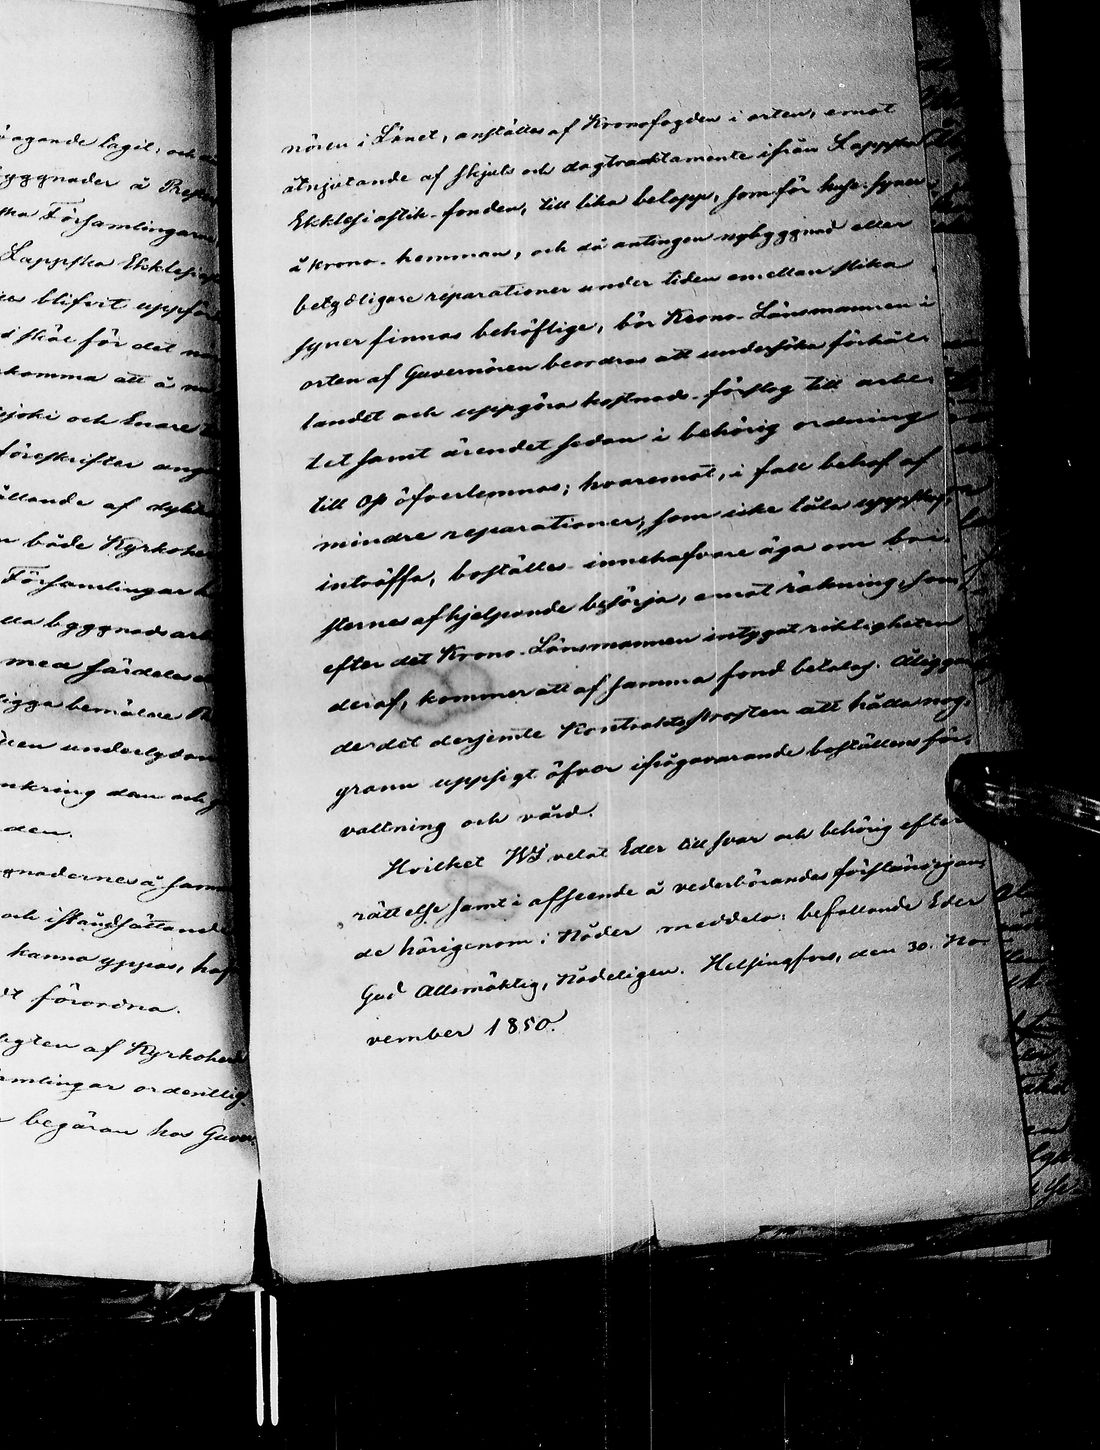 ägande laget; och
yggnader å Prest
ska Församlingarne
Lappska Ekklesi
blifvit uppför
skäl för det
komma att å
joki och Enare
föreskrifter
ållande af
både Kyrkoher
Församlingar
byggnads arb
med särdeles
ligga bemälde
underlydan
nkring den och
den.
gnadernes å sam
och iståndsättande
kunna yppas, haf
förordna.
gten af Kyrkoherd
amlingar ordentlig
begäran hos Guver-
nören i Länet, anställes af Kronofogden i orten, emot
åtnjutande af skjuts och dagtraktamente ifrån Lappska
Ekklesiastik-fonden, till lika belopp, som för huse-syner
å krono-hemman, och då antingen nybyggnad eller
betydligare reparationer under tiden emellan slika
syner finnas behöflige, bör Krono-Länsmannen i
orten af Guvernören beordras att undersöka förhål-
landet och uppgöra kostnads-förslag till arbe-
tet samt ärendet sedan i behörig ordning
till Oss öfverlemnas; hvaremot, i fall behof af
mindre reparationer, som icke tåla uppskof,
inträffa, boställs-innehafvare äga om bri-
sternes afhjelpande besörja, emot räkning, som
efter det Krono-Länsmannen intygat riktigheten
deraf, kommer att af samma fond betalas. Åliggan-
de det derjemte Kontraktsprosten att hålla nog-
grann uppsigt öfver ifrågavarande boställens för-
valtning och vård.
Hvilket Wi velat Eder till svar och behörig efter-
rättelse samt i afseende å vederbörandes förständigan-
de härigenom i Nåder meddela; befallande Eder
Gud Allsmäktig, Nådeligen. Helsingfors, den 30. No-
vember 1850.